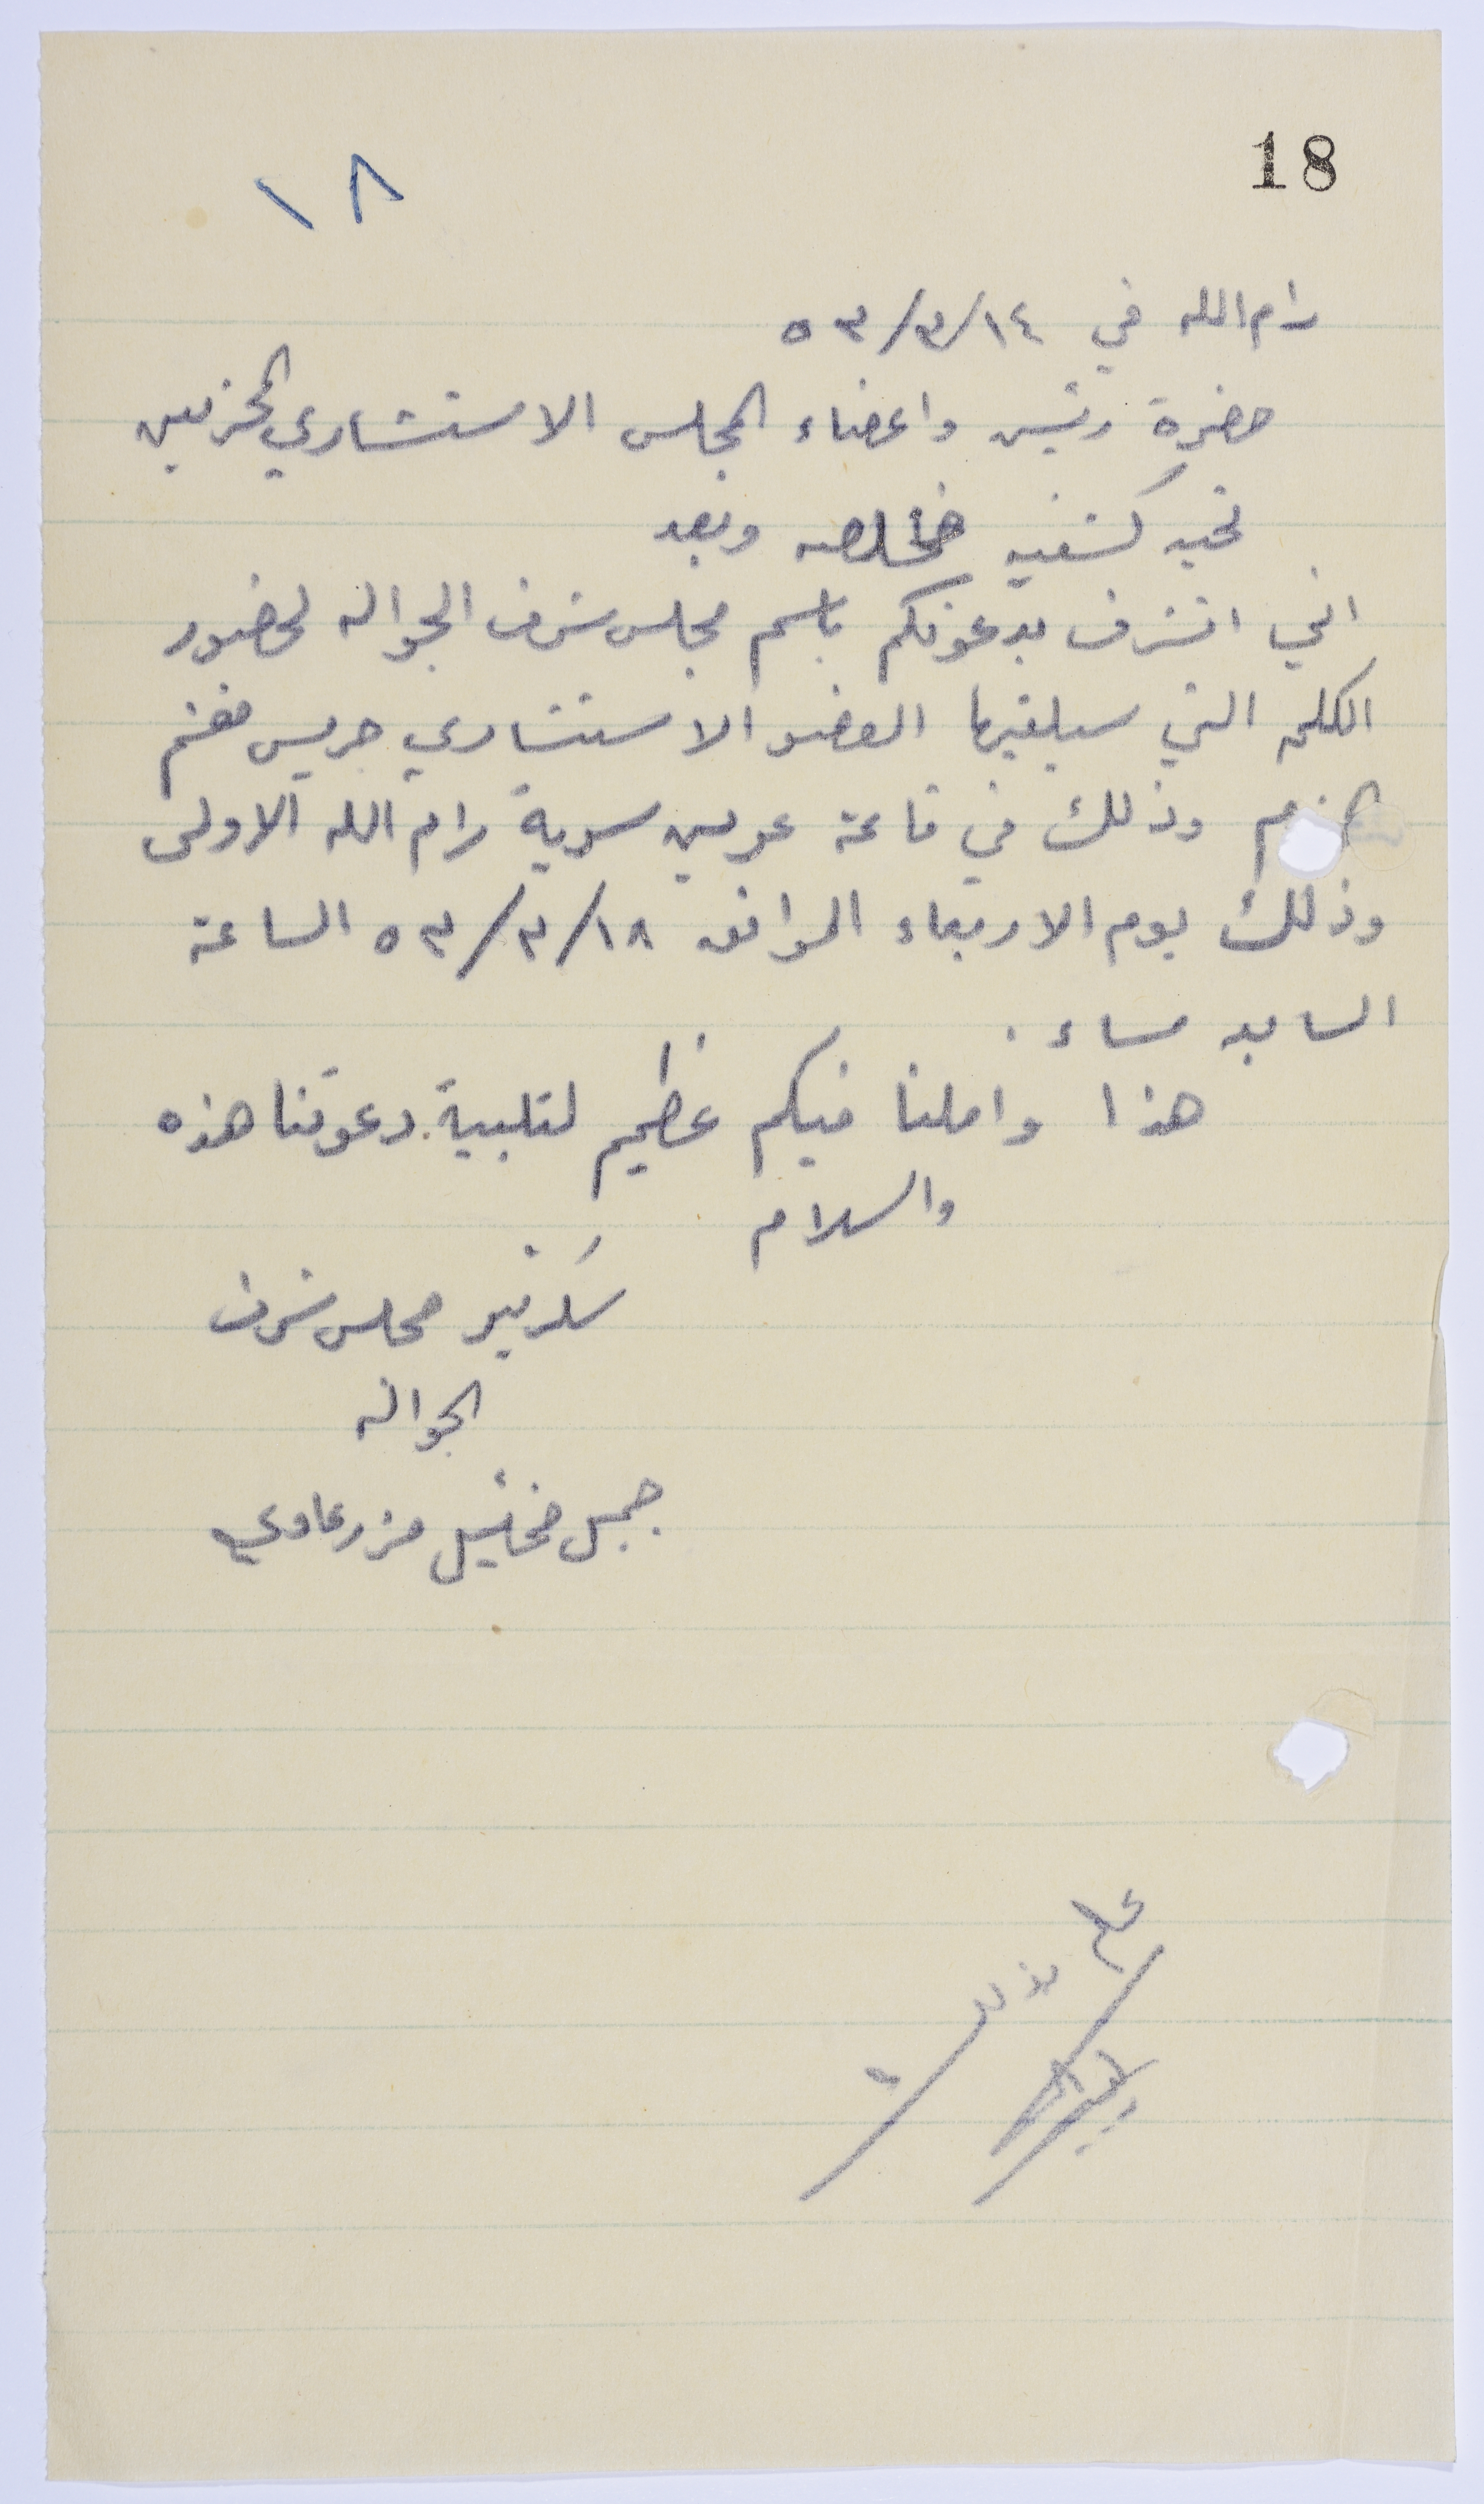 18
١٨
رام الله في ١٤/٣/٥٣
حضرة رئيس واعضاء المجلس الاستشاري المحترمين
تحيه كشفيه خالصه وبعد
اني اتشرف بدعوتكم باسم مجلس شرف الجواله لحضور
الكلمه التي سيلقيها العضو الاستشاري جريس مغنم
وذلك في قاعة عرين سرية رام الله الاولى
وذلك يوم الاربعاء الموافق ١٨/٣/٥٣ الساعة
مساء .
هذا واملنا فيكم عظيم لتلبية دعوتنا هذه
والسلام
سكرتير مجلس شرف
الجواله
جميل مخائيل مزرعاوي